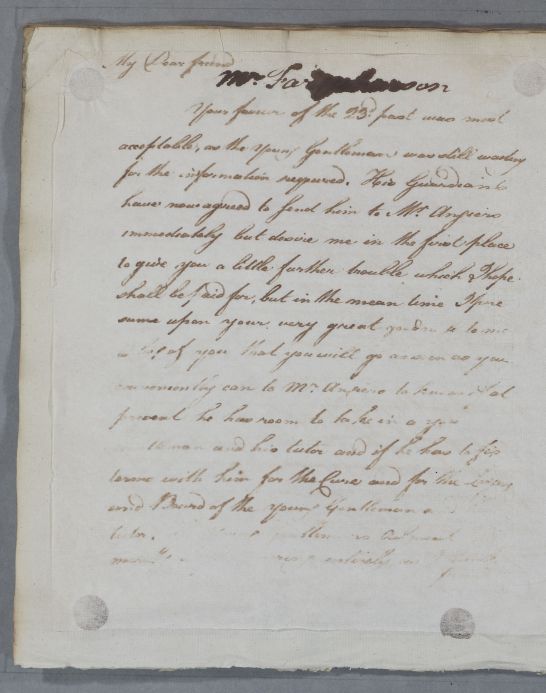 My Dear friend
Mr. Farquharson
Your favour of the 23d. past was most
acceptable, as the Young Gentleman was still waiting
for the information required. His Guardians
have now agreed to send him to Mr. Angiers
immediately but desire me in the first place
to give you a little further trouble which I hope
shall be paid for, but in the mean time I pre
sume upon your very great to me
of you that you will go as soon as you
conveniently can to Mr. Angiers to know if at
present he has room to take in a
and his tutor and if he has to fix
terms with him for the Cure and for the
and Board of the young Gentleman
tutor.
entirely